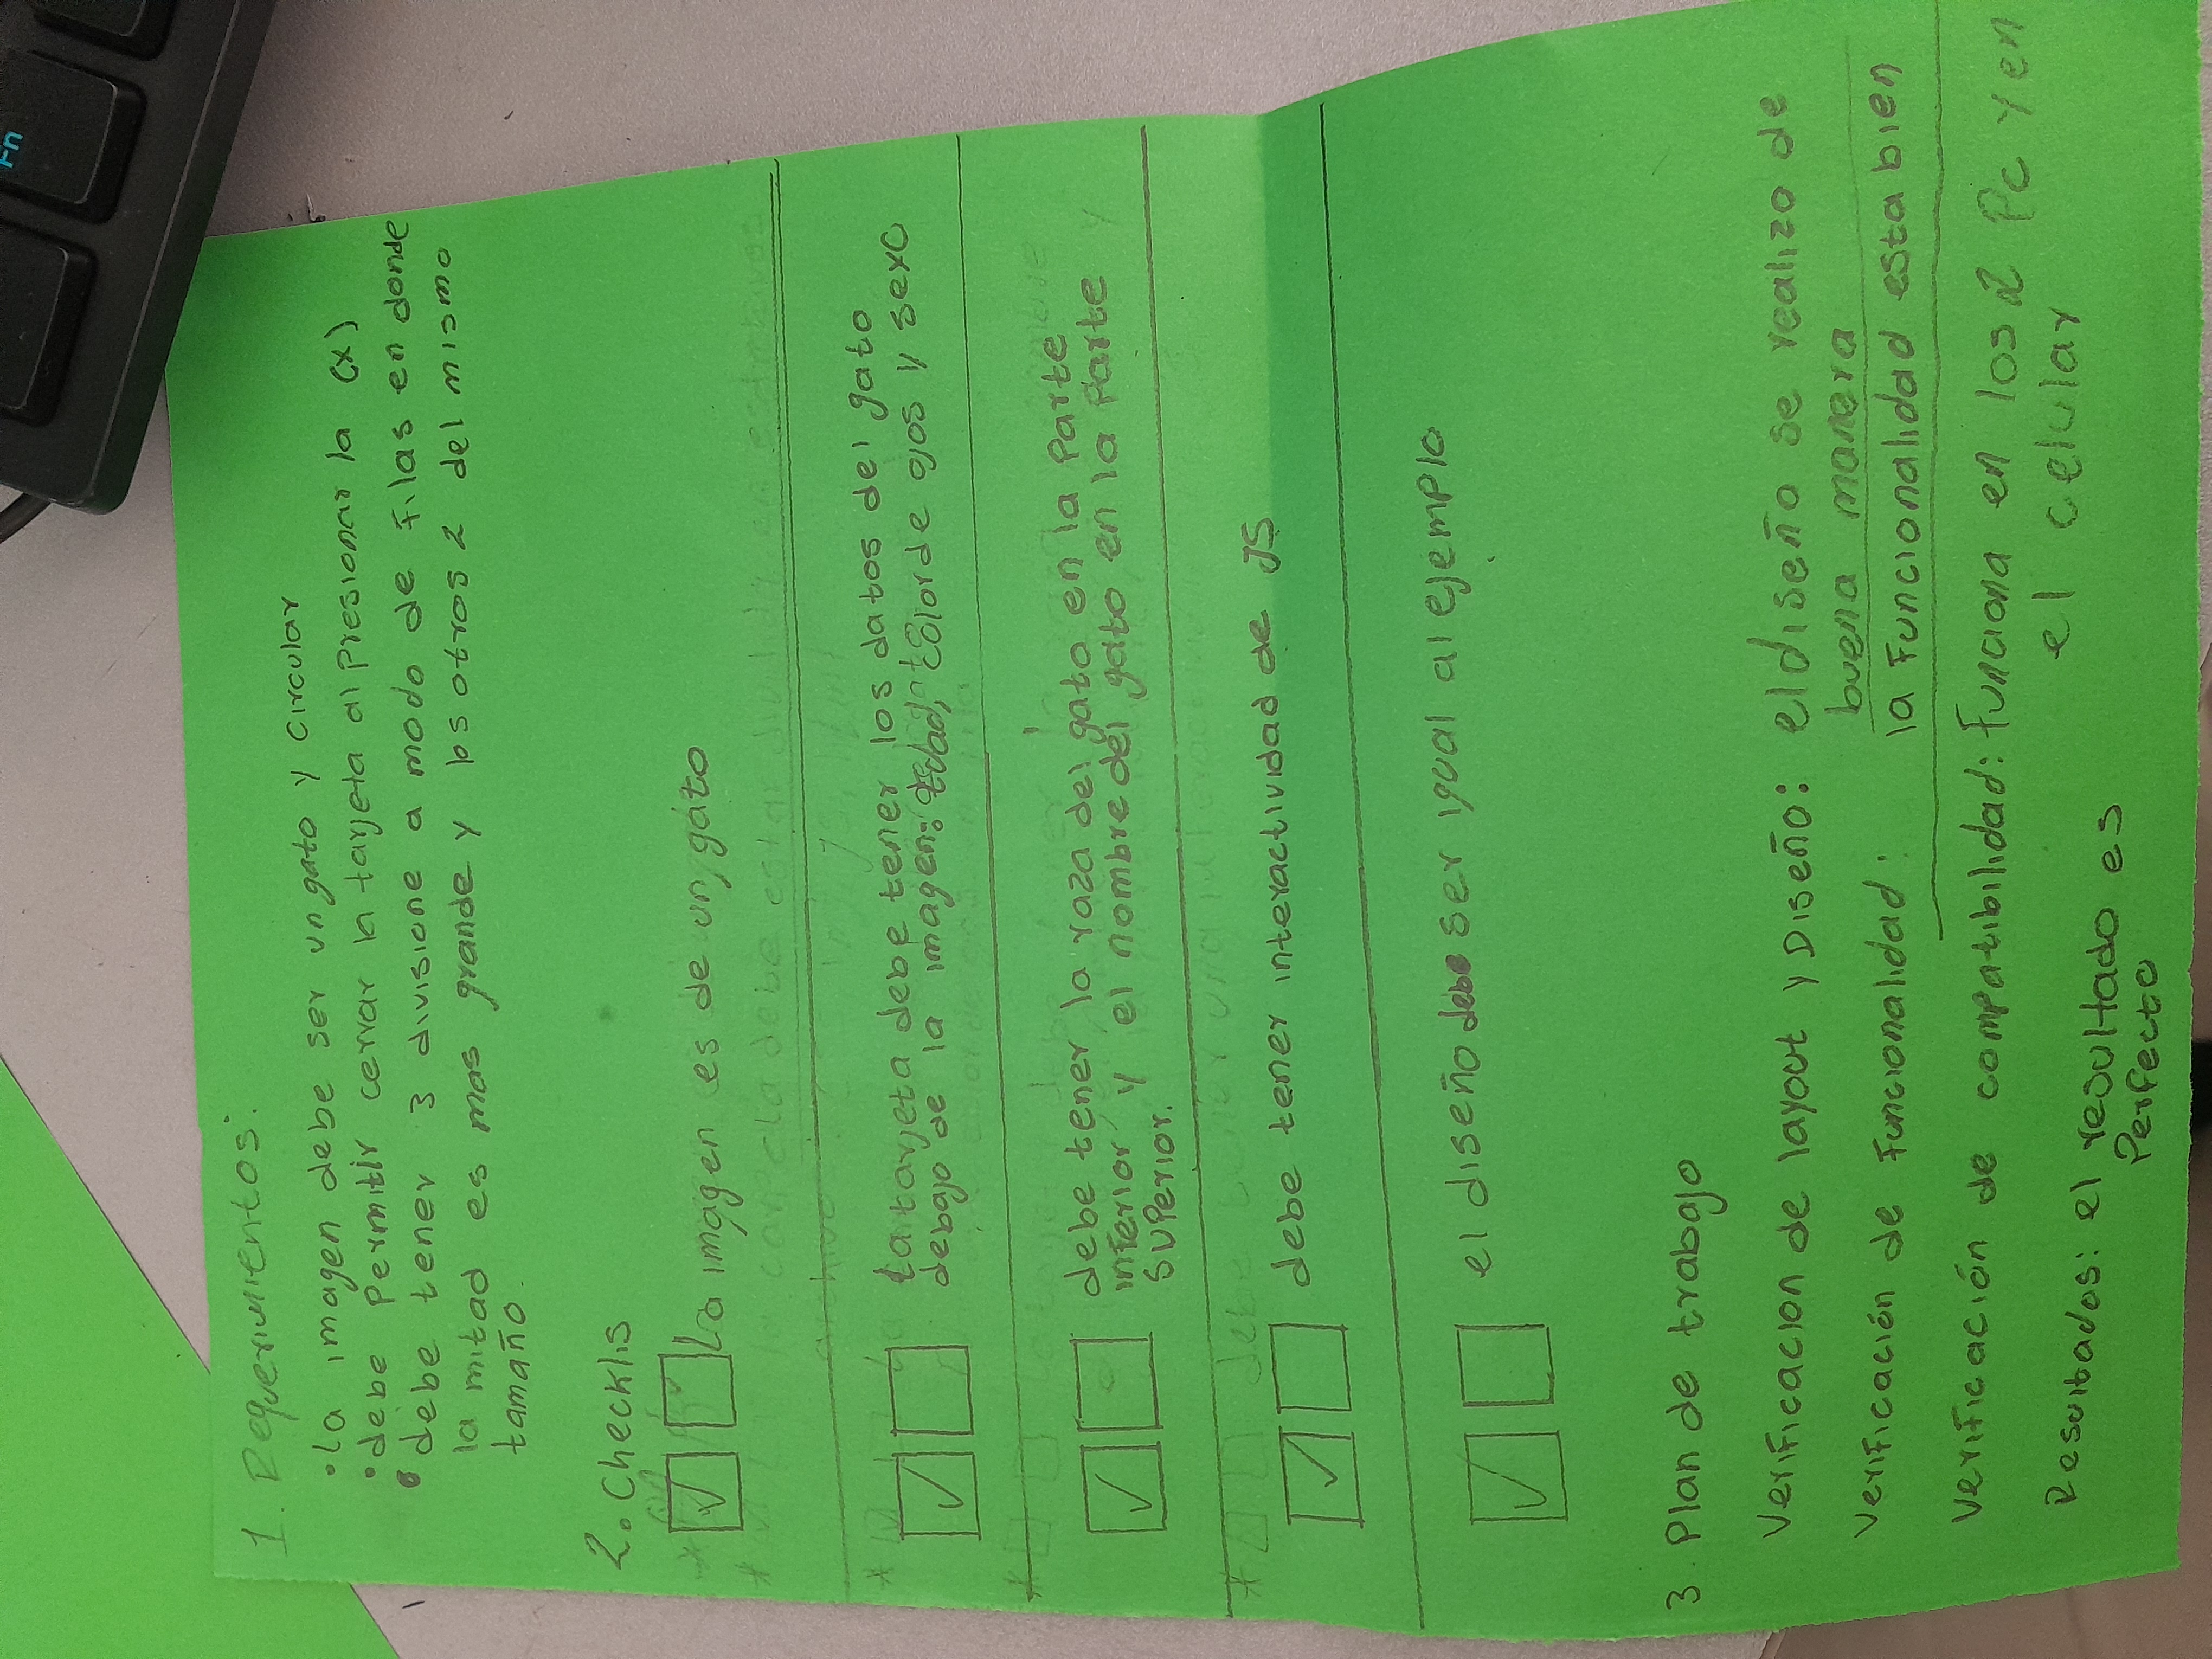 Fn
1. Requerimientos:
• la imagen debe ser un gato y circular
• debe permitir cerrar la tarjeta al presionar la (x)
• debe tener 3 divisione a modo de filas en donde
la mitad es mas grande y los otros 2 del mismo
tamaño.
2. Checklis
La imagen es de un gato
La tarjeta debe tener los datos del gato
debajo de la imagen: edad, color de ojos y sexo
debe tener la raza del gato en la parte
inferior y el nombre del gato en la parte
superior.
debe tener interactividad de JS
el diseño debe ser igual al ejemplo
3. Plan de trabajo
Verificacion de layout y Diseño: el diseño se realizo de
buena manera
Verificación de Funcionalidad: la Funcionalidad esta bien
Verificación de compatibilidad: Funciona en los 2 Pc y en
el celular
Resultados: el resultado es
Perfecto